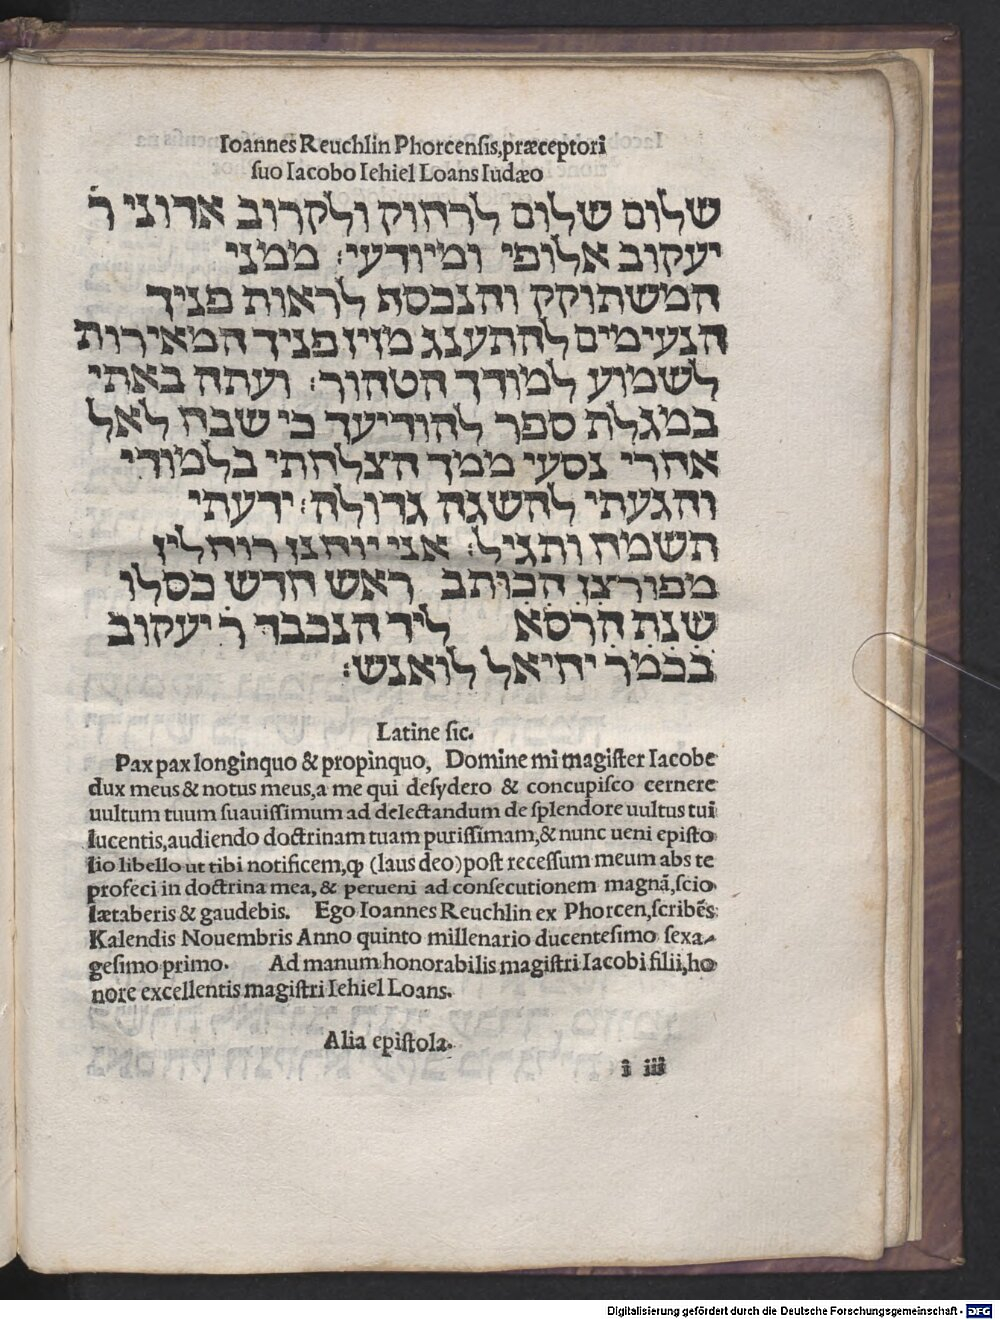 Ioannes Reuchlin Phorcensis,præceptori
suo Iacobo Iehiel Loans Iudæo
שלום שלום לרחוק ולקרוב אדוני ר̇
יעקוב אלופי ומיודעי: ממני
המשתוקק והנכסף לראות פניך
הנעימים להתענג מזיו פניך המאירות
לשמוע למודך הטהור: ועתה באתי
במגלת ספר להודיעך כי שבח לאל
אחרי נסעי ממך הצלחתי בלמודי
והגעתי להשגה גדולה: ידעתי
תשמח ותגיל: אני יוחנן רוחלין
מפורצן הכותב ראש חדש כסלו
שנת הרסא ליד הנכבד ר יעקוב
בכמר יחיאל לואנש:
Latine sic.
Pax pax longinquo & propinquo, Domine mi magister Iacobe
dux meus & notus meus,a me qui desydero & concupisco cernere
uultum tuum suauissimum ad delectandum de splendore uultus tui
lucentis,audiendo doctrinam tuam purissimam,& nunc ueni episto
lio libello ut tibi notificem,ꝙ (laus deo)post recessum meum abs te
profeci in doctrina mea, & perueni ad consecutionem magnā,scio
lætaberis & gaudebis. Ego Ioannes Reuchlin ex Phorcen,scribēs
Kalendis Nouembris Anno quinto millenario ducentesimo sexa-
gesimo primo. Ad manum honorabilis magistri Iacobi filii,ho
nore excellentis magistri Iehiel Loans.
Alia epistola.
i iii
Digitalisierung gefördert durch die Deutsche Forschungsgemeinschaft - DFG